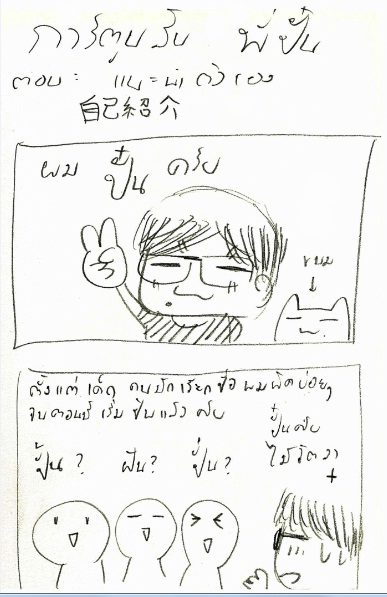 การ์ตูนรับ พี่ปั๋น
ตอน: แนะนำตัวเอง
自己紹介
ผม ปั๋น ครับ
ตั้งแต่เด็ก คนมักเรียกชื่อ ผมผิดบ่อยๆ
จนตอนนี้ เริ่ม ชินแล้ว ครับ
ปั้น? ฝัน? ปั่น?
ปั๋นครับ
ไม้จัตวา